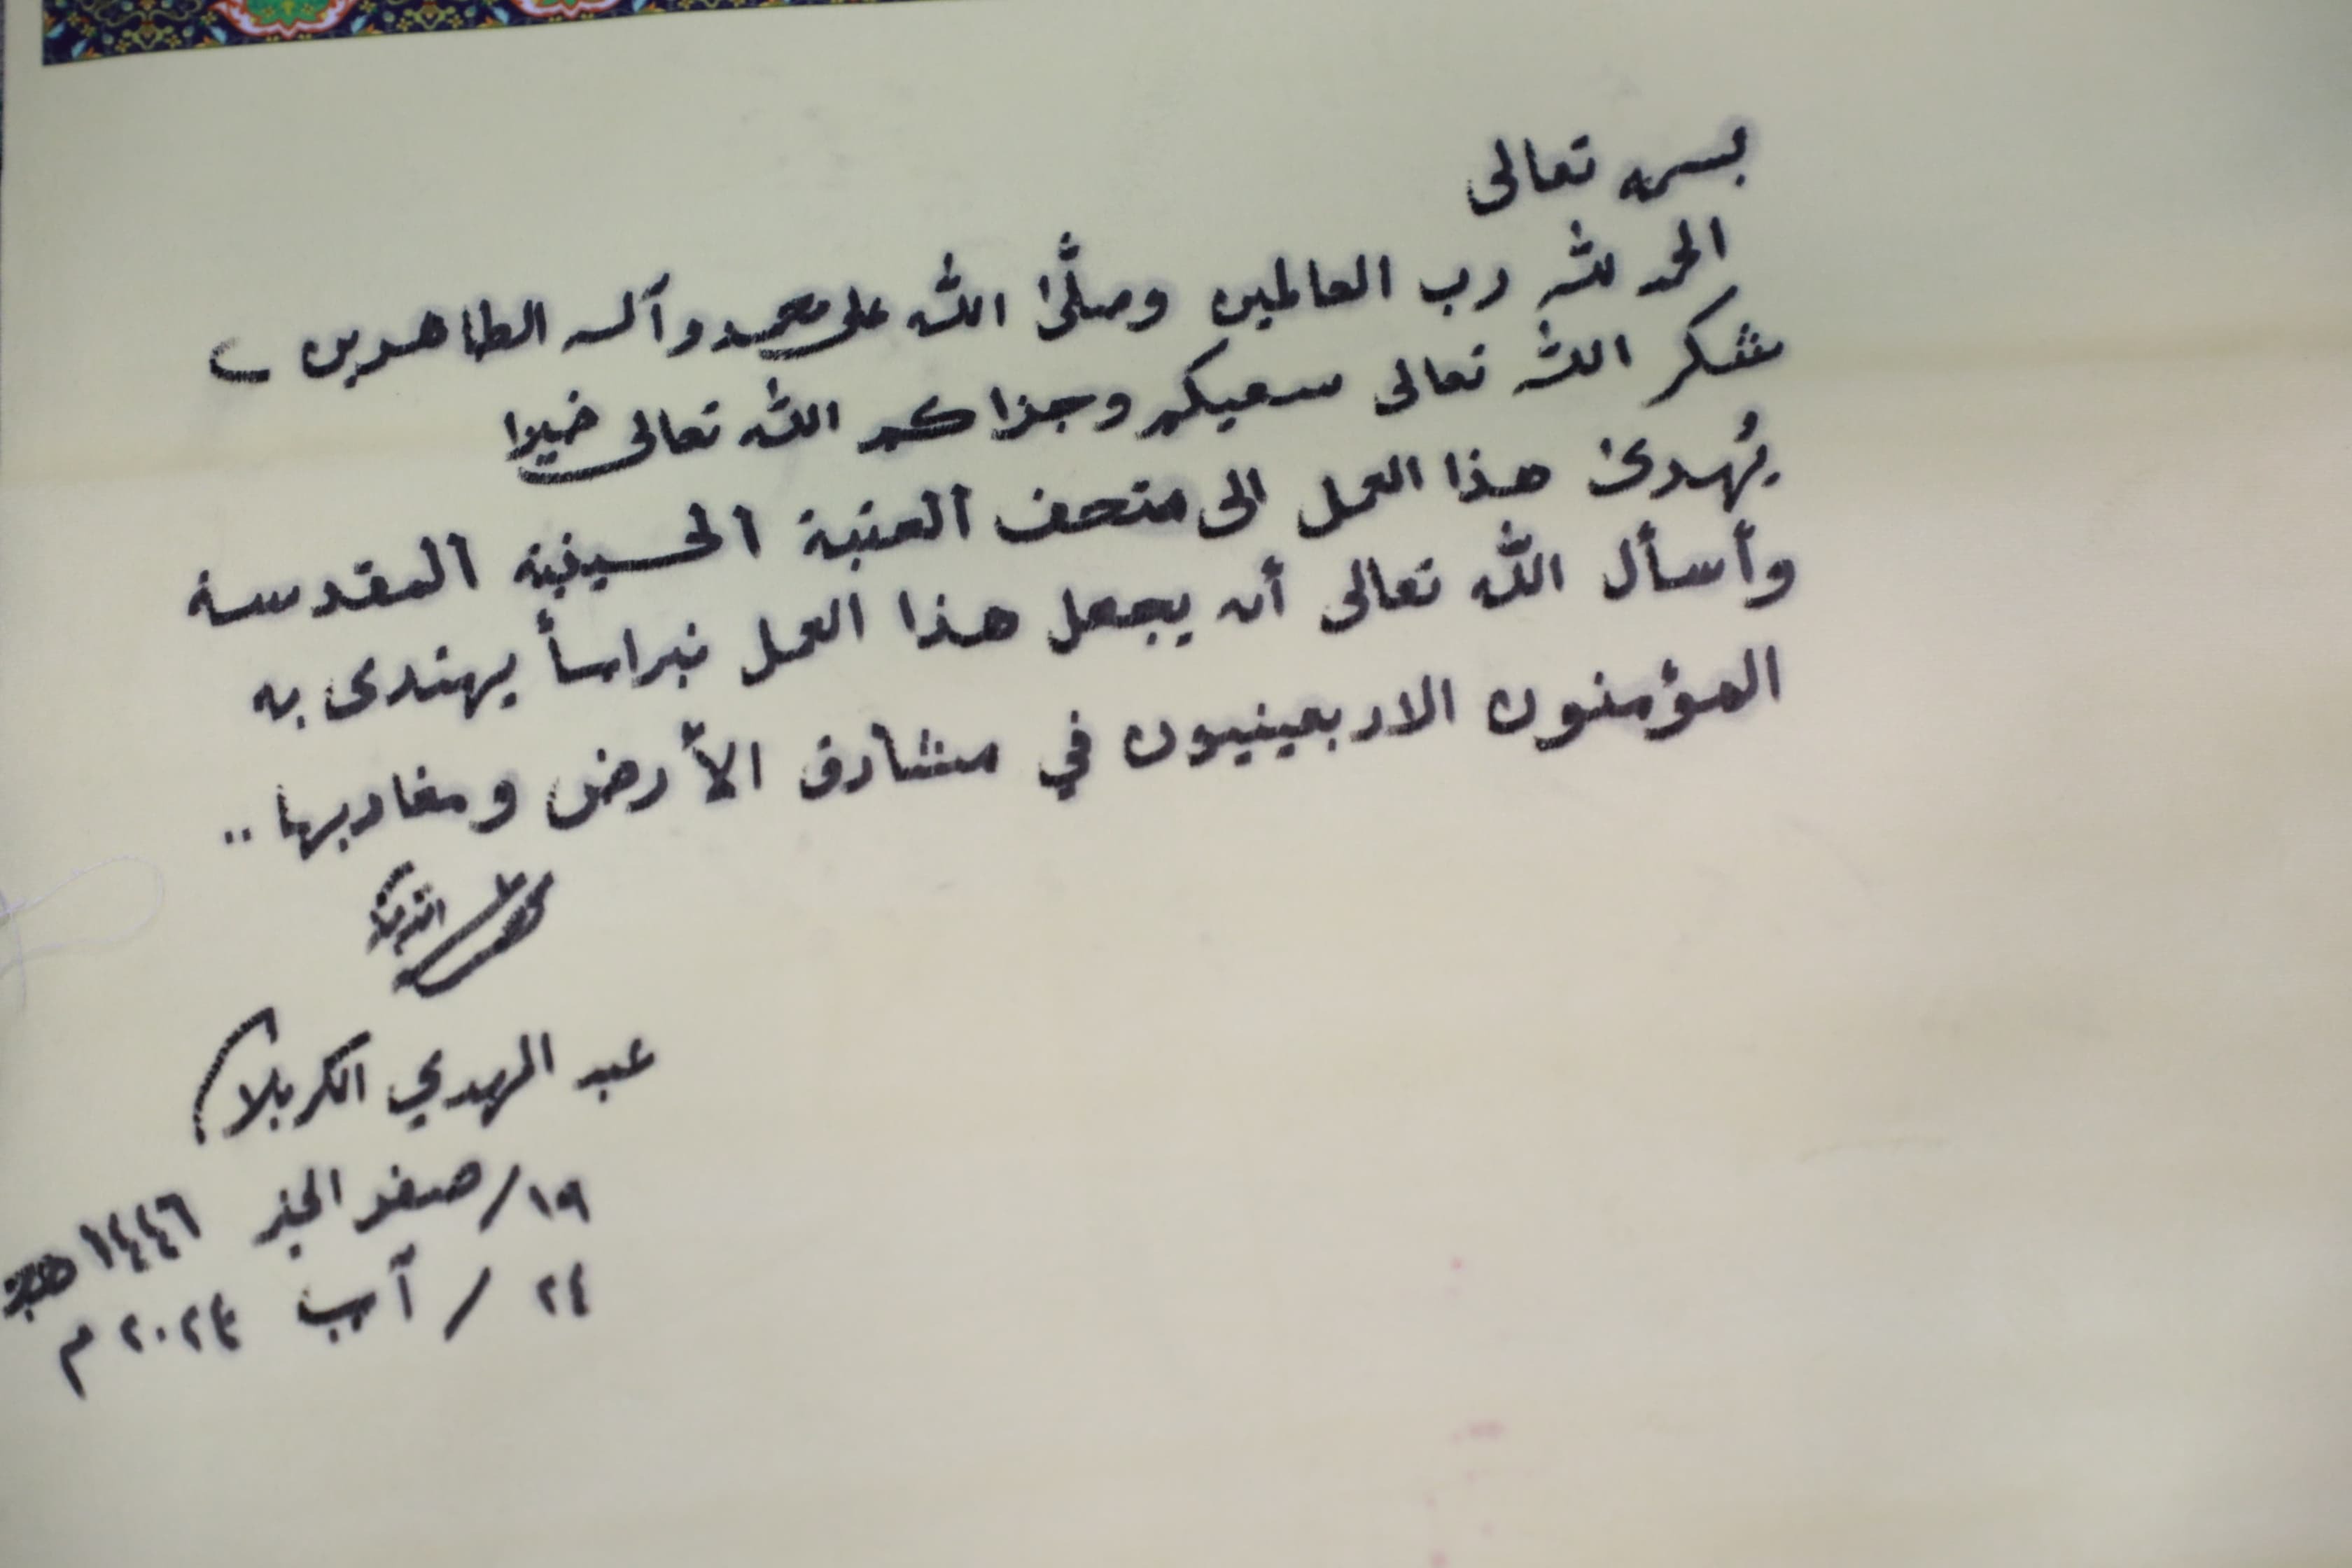 بسمه تعالى
الحمد لله رب العالمين وصلَّى الله على محمد وآله الطاهرين
شكر الله تعالى سعيكم وجزاكم الله تعالى خيرا
يُهدى هذا العمل الى متحف العتبة الحسينية المقدسة
وأسأل الله تعالى أن يجعل هذا العمل نبراساً يهتدى به
المؤمنون الاربعينيون في مشارق الأرض ومغاربها ..
عبد المهدي الكربلائي
١٩/ صفر الخير ١٤٤٦ هـ
٢٤ / آب ٢٠٢٤ م